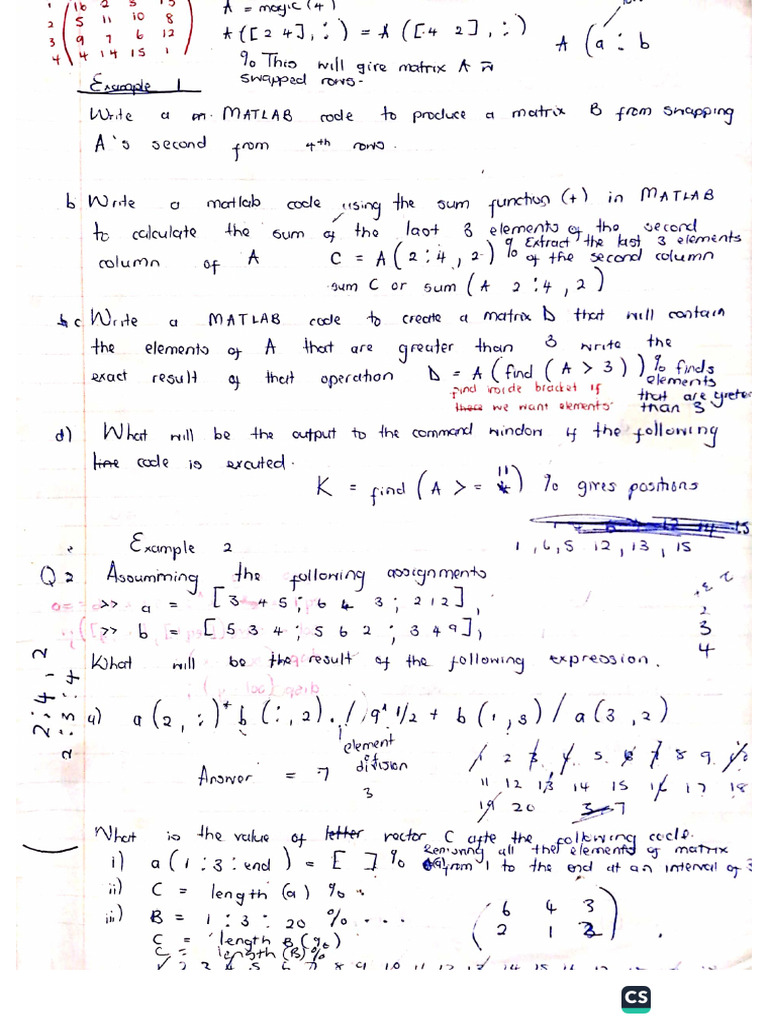 1 16 2 3 13
2 5 11 10 8
3 9 7 6 12
4 4 14 15 1
A = magic (4)
A([2 4], : ) = A ([4 2], : )
A (a : b
% This will give matrix A w
swapped rows.
Example 1
Write a m. MATLAB code to produce a matrix B from swapping
A's second from 4th rows.
b Write a matlab code using the sum function (+) in MATLAB
to calculate the sum of the last 3 elements of the second
column of A C = A(2:4, 2) % Extract the last 3 elements
% of the second column
sum C or sum (A 2:4, 2)
c Write a MATLAB code to create a matrix D that will contain
the elements of A that are greater than 3 write the
exact result of that operation D = A(find(A > 3)) % finds
elements
that are greter
than 3
find inside bracket if
there we want elements.
d) What will be the output to the command window if the following
line code is excuted.
K = find (A >= 11) % gives positions
1, 6, 5 12, 13, 15
Example 2
Q2 Assumming the following assignments
>> a = [3 4 5; 6 4 3; 2 1 2],
>> b = [5 3 4; 5 6 2; 3 4 9],
What will be the result of the following expression.
2
3
4
2;4,2
2:3:4
a) a(2, :)* b(:, 2). / 9^ 1/2 + b(1,3) / a(3,2)
element
division
3
Answer = 7
1 2 3 4 5 6 7 8 9 10
11 12 13 14 15 16 17 18
19 20 3 7
What is the value of letter vector C afte the following code.
i) a(1:3:end) = [ ] % Removing all the elements of matrix
(a) from 1 to the end at an interval of 3
ii) C = length (a) %
iii) B = 1:3:20 % . . . .
C = length B (%)
C = length (B) %
6 4 3
2 1 2
1 2 3 4 5 6 7 8 9 10 11 12 13 14 15 16 17
CS